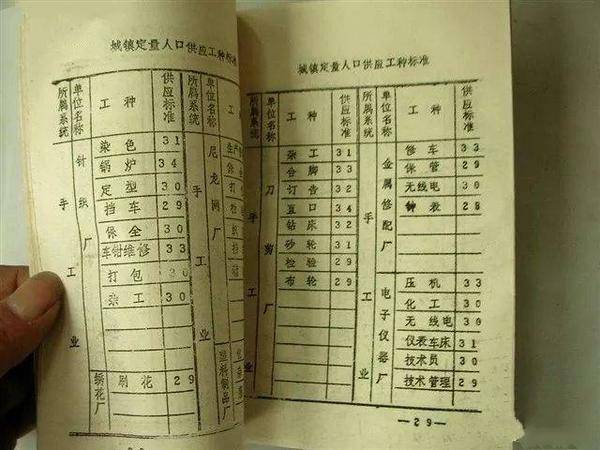 城镇定量人口供应工种标准
所属系统 单位名称 工种 供应标准 所属系统 单位名称
手工业 针织厂 染色 31 手工业 尼龙网厂
锅炉 34
定型 30
挡车 29
保全 30
车钳维修 33
打包 30
杂工 30
绣花厂 刷花 29 塑料制品厂
城镇定量人口供应工种标准
所属系统 单位名称 工种 供应标准 所属系统 单位名称 工种 供应标准
手工业 刀剪厂 杂工 31 手工业 金属修配厂 修车 33
台脚 33 保管 29
订告 32 无线电 30
直口 34 钟表 28
钻床 32
砂轮 31
检验 29 电子仪器厂 压机 33
布轮 29 化工 30
无线电 30
仪表车床 31
技术员 30
技术管理 29
—29—